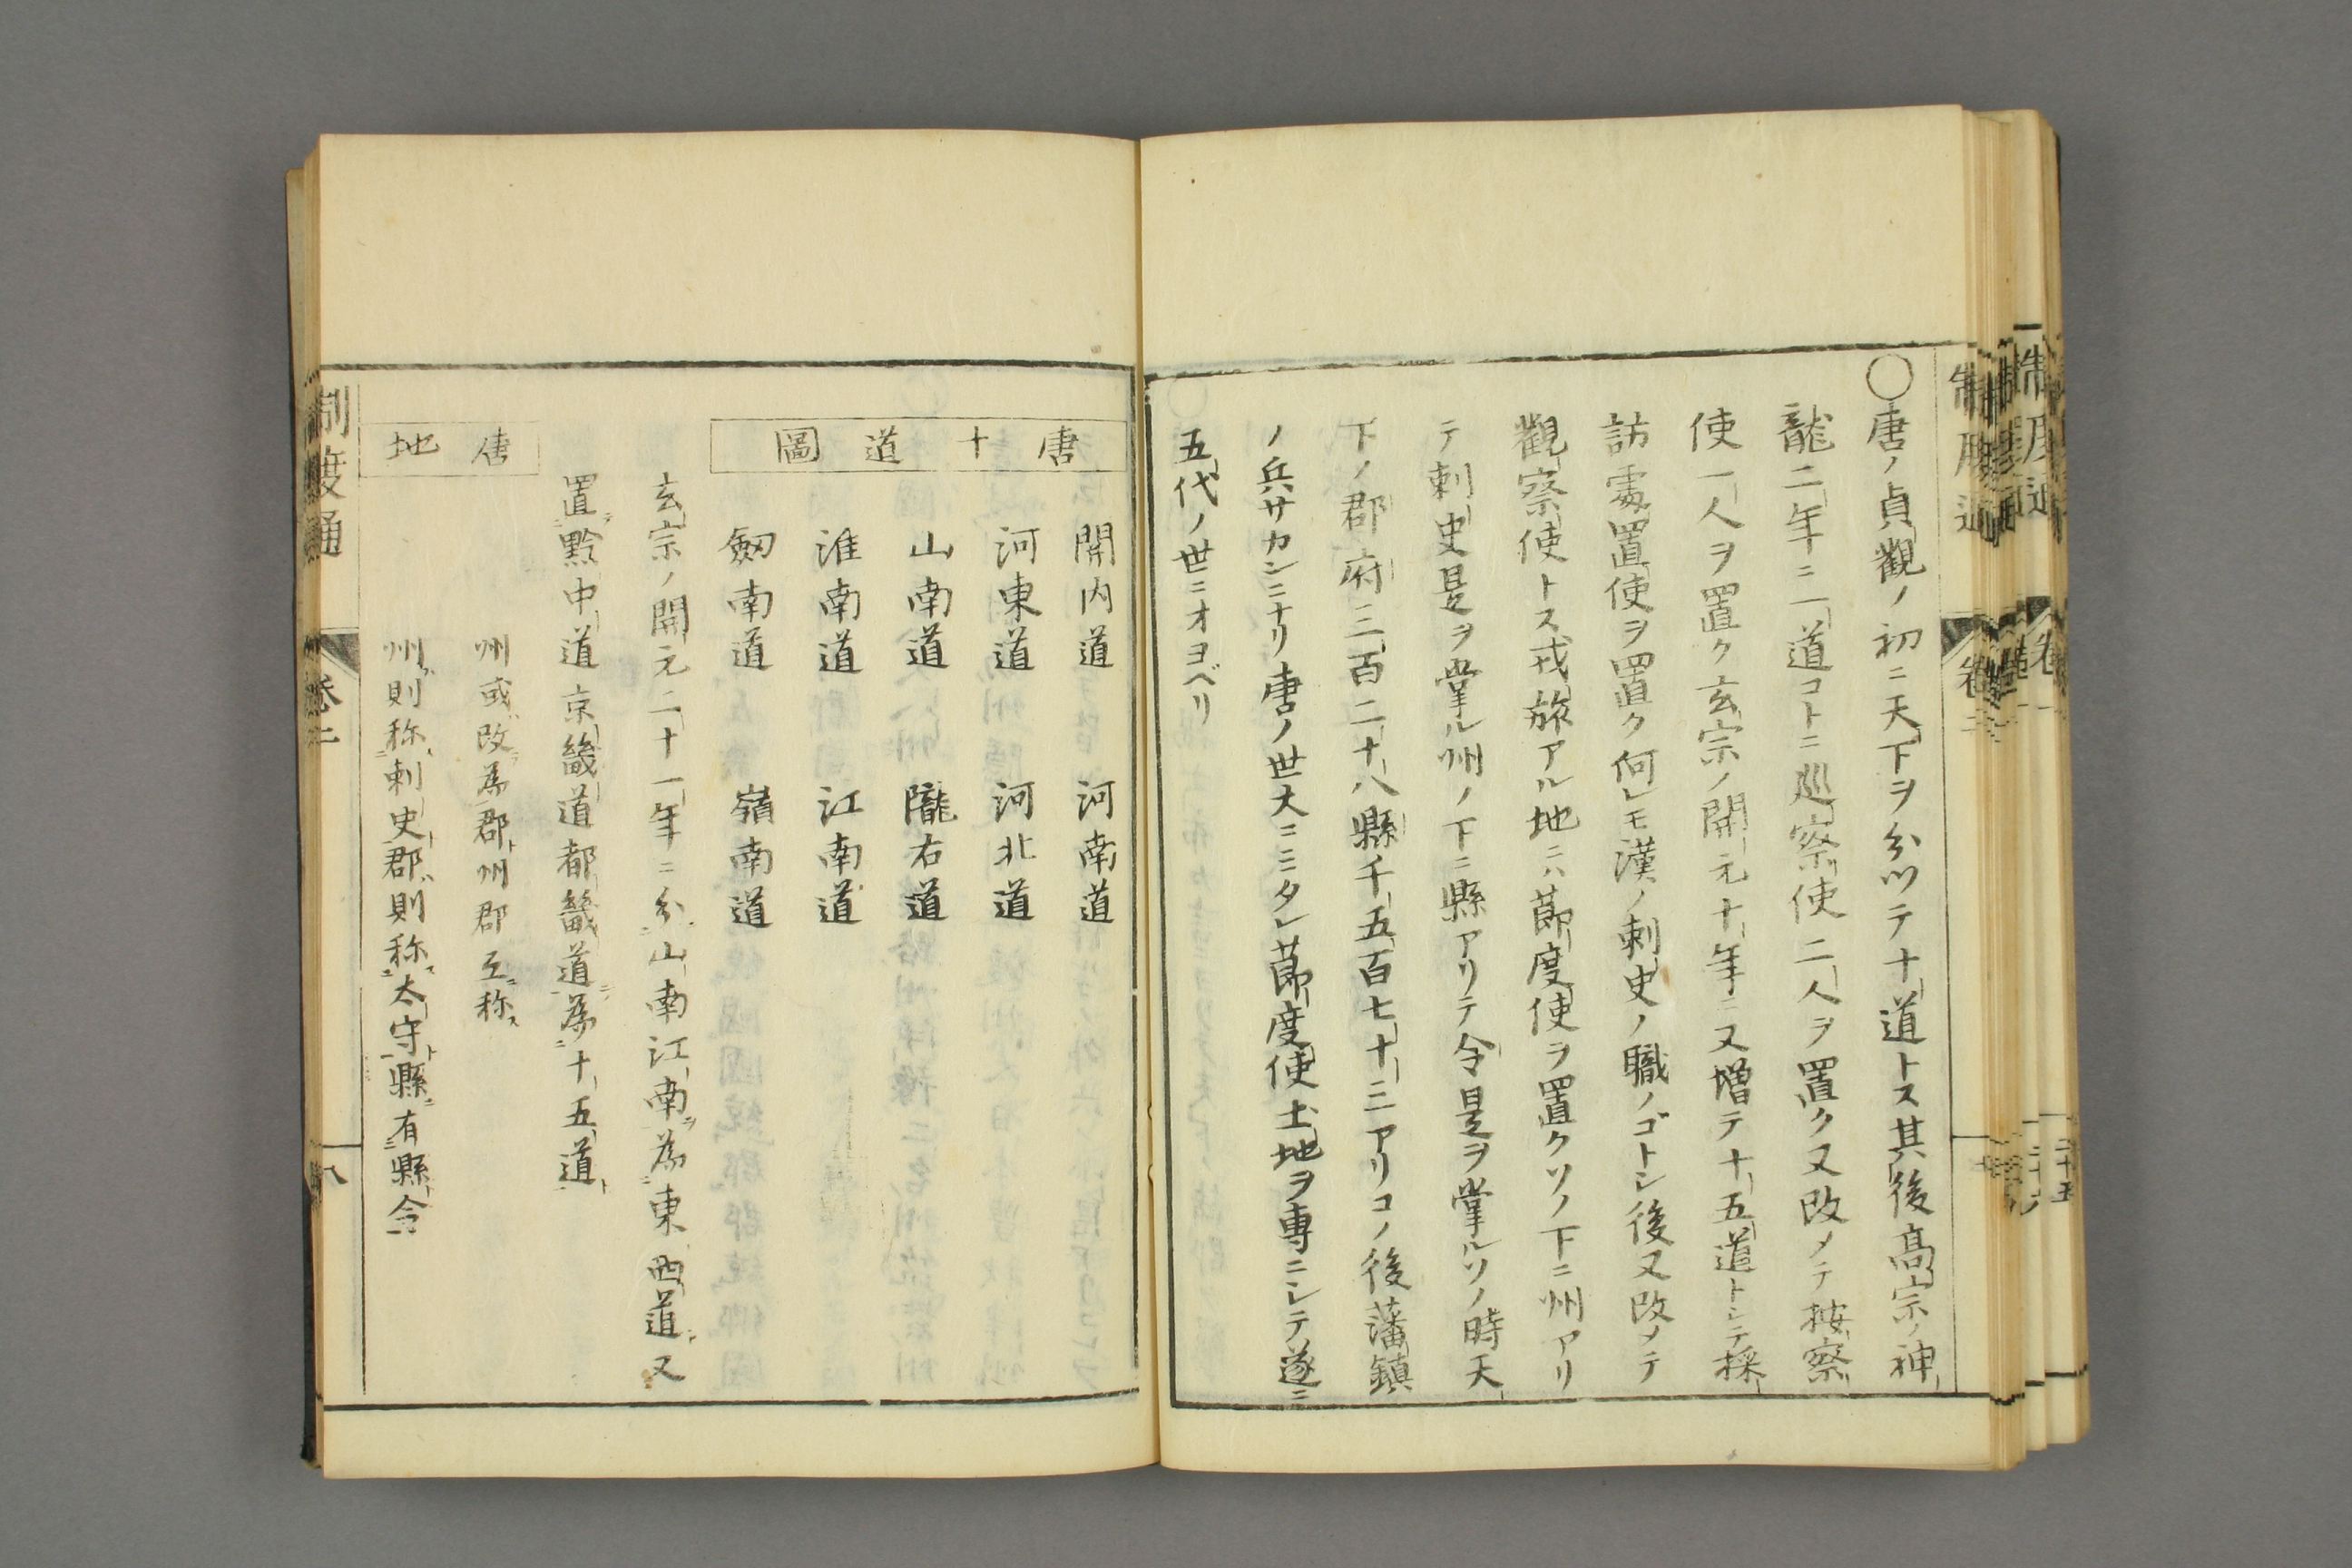 ○唐ノ貞觀ノ初ニ天下ヲ分ツテ十道トス其後高宗ノ神
龍二年ニ一道コトニ巡察使二人ヲ置ク又改メテ按察
使一人ヲ置ク玄宗ノ開元十年ニ又増テ十五道トシテ採
訪處置使ヲ置ク何レモ漢ノ刺史ノ職ノゴトシ後又改メテ
觀察使トス戎旅アル地ニハ節度使ヲ置クソノ下ニ州アリ
テ刺史是ヲ掌ル州ノ下ニ縣アリテ令是ヲ掌ルソノ時天
下ノ郡府三百二十八縣千五百七十三アリコノ後藩鎮
ノ兵サカンニナリ唐ノ世大ニミタレ節度使土地ヲ專ニシテ遂ニ
五代ノ世ニオヨベリ
唐十道圖
開内道 河南道
河東道 河北道
山南道 隴右道
淮南道 江南道
劔南道 嶺南道
玄宗ノ開元二十一年ニ分山南江南為東西道又
置黔中道京畿道都畿道為十五道
唐地
州或改為郡州郡互称
州則称刺史郡則称太守縣有縣令
制度通 卷二 八